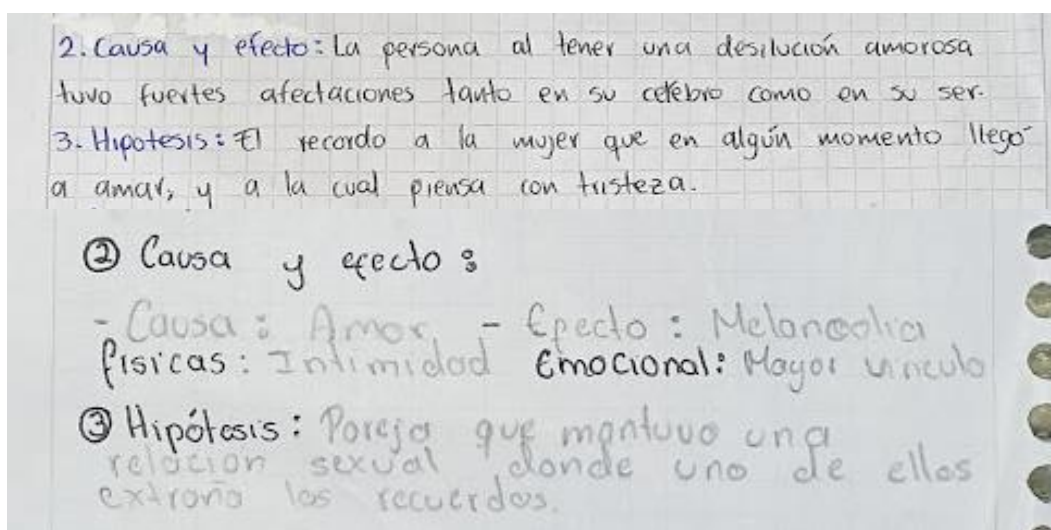 2. Causa y efecto: La persona al tener una desilución amorosa
tuvo fuertes afectaciones tanto en su celebro como en su ser.
3. Hipotesis: El recordo a la mujer que en algún momento llegó
a amar, y a la cual piensa con tristeza.
② Causa y efecto:
- Causa: Amor - Efecto: Melancolia
físicas: Intimidad Emocional: Mayor vinculo
③ Hipótesis: Pareja que mantuvo una
relación sexual donde uno de ellos
extraña los recuerdos.